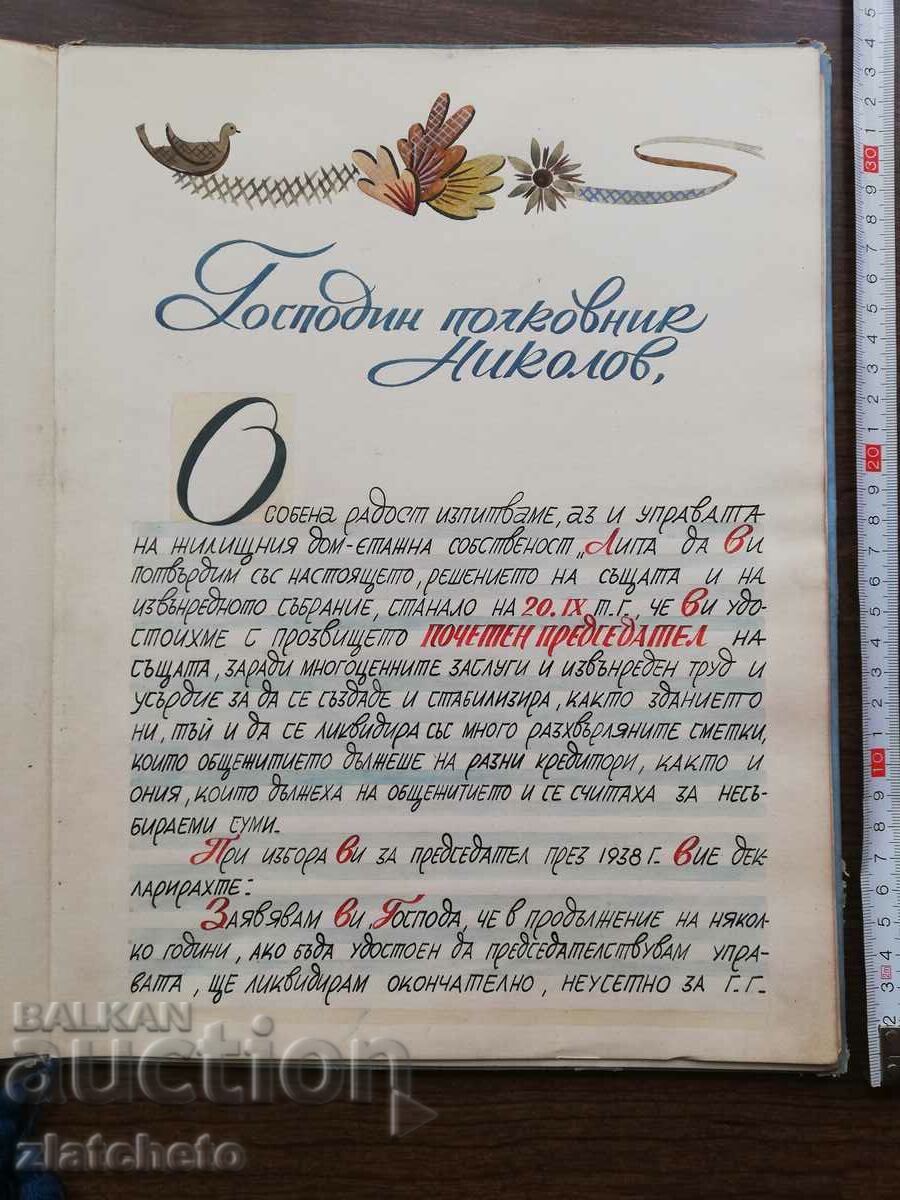 Господин полковник
Николов,
Особена радост изпитваме, аз и управата
на жилищния дом-етажна собственост „Липа да Ви
потвърдим със настоящето, решението на същата и на
извънредното събрание, станало на 20.IX т.г., че Ви удо-
стоихме с прозвището ПОЧЕТЕН ПРЕДСЕДАТЕЛ на
същата, заради многоценните заслуги и извънреден труд и
усърдие за да се създаде и стабилизира, както зданието
ни, тъй и да се ликвидира със много разхвърляните сметки,
които общежитието дължеше на разни кредитори, както и
ония, които дължеха на общежитието и се считаха за несъ-
бираеми суми.
При избора Ви за председател през 1938 г. Вие дек-
ларирахте:
Заявявам Ви, Господа, че в продължение на някол-
ко години, ако бъда удостоен да председателствувам упра-
вата, ще ликвидирам окончателно, неусетно за г.г.-
BALKAN
auction
zlatcheto
5
4
3
2
1
30
9
8
7
6
5
4
3
2
1
20
9
8
7
6
5
4
3
2
1
10
9
8
7
6
5
4
2m
3
2